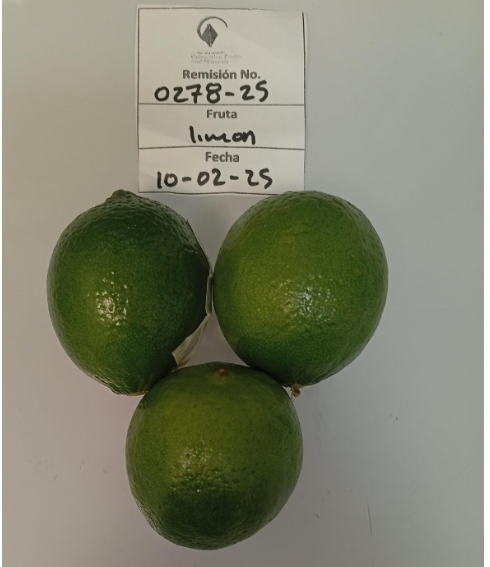 Remisión No.
0278-25
Fruta
limon
Fecha
10-02-25